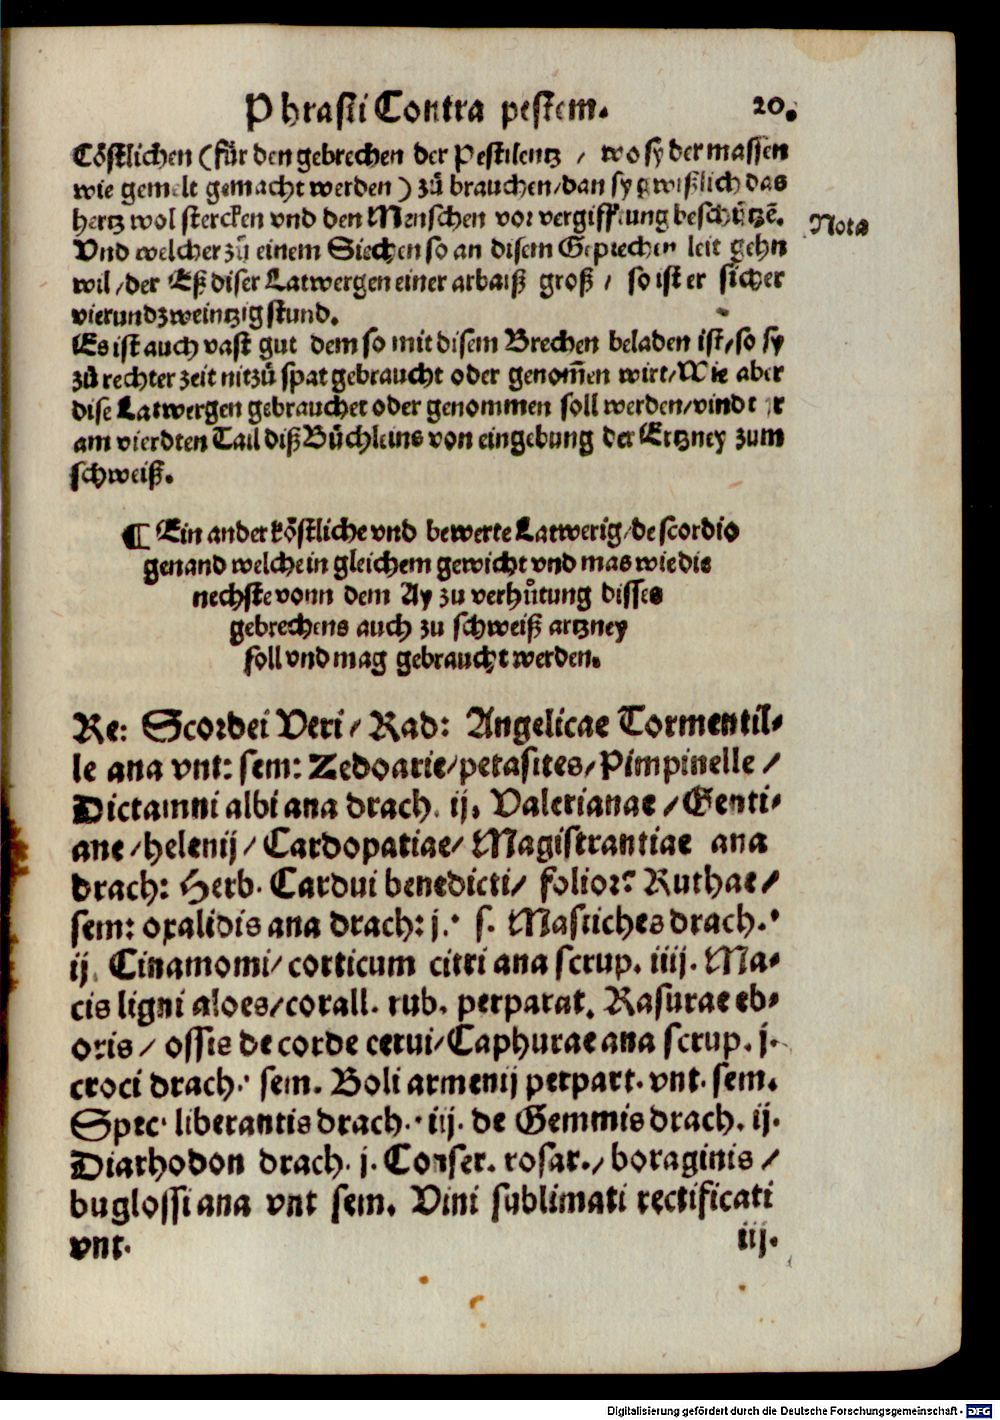 Phrasti Contra pestem. 20.
Cöstlichen (für den gebrechen der Pestilentz / wo sy der massen
wie gemelt gemacht werden) zů brauchen / dan sy gwißlich das
hertz wol stercken vnd den Menschen vor vergifftung beschützē.
Nota
Vnd welcher zů einem Siechen so an disem Geprechen leit gehn
wil / der Eß diser Latwergen einer arbaiß groß / so ist er sicher
vierundzweintzig stund.
Es ist auch vast gut dem so mit disem Brechen beladen ist / so sy
zů rechter zeit nit zů spat gebraucht oder genom̄en wirt / Wie aber
dise Latwergen gebrauchet oder genommen soll werden / vindt er
am vierdten Tail diß Büchleins von eingebung der Ertzney zum
schweiß.
¶ Ein ander köstliche vnd bewerte Latwerig / de scordio
genand welche in gleichem gewicht vnd mas wie die
nechste vonn dem Ay zu verhůtung disses
gebrechens auch zu schweiß artzney
soll vnd mag gebraucht werden.
Re: Scordei Veri / Rad: Angelicae Tormentil⸗
le ana vnt: sem: Zedoarie / petasites / Pimpinelle /
Dictamni albi ana drach. ij. Valerianae / Genti⸗
ane / helenij / Cardopatiae / Magistrantiae ana
drach: Herb. Cardui benedicti / folior: Ruthae /
sem: oxalidis ana drach: j. s. Mastiches drach.
ij. Cinamomi / corticum citri ana scrup. iiij. Ma⸗
cis ligni aloes / corall. rub. perparat. Rasurae eb⸗
oris / ossis de corde cerui / Caphurae ana scrup. j.
croci drach. sem. Boli armenij perpart. vnt. sem.
Spec liberantis drach. iij. de Gemmis drach. ij.
Diarhodon drach. j. Conser. rosar. / boraginis /
buglossi ana vnt sem. Vini sublimati rectificati
vnt. iij.
Digitalisierung gefördert durch die Deutsche Forschungsgemeinschaft - DFG